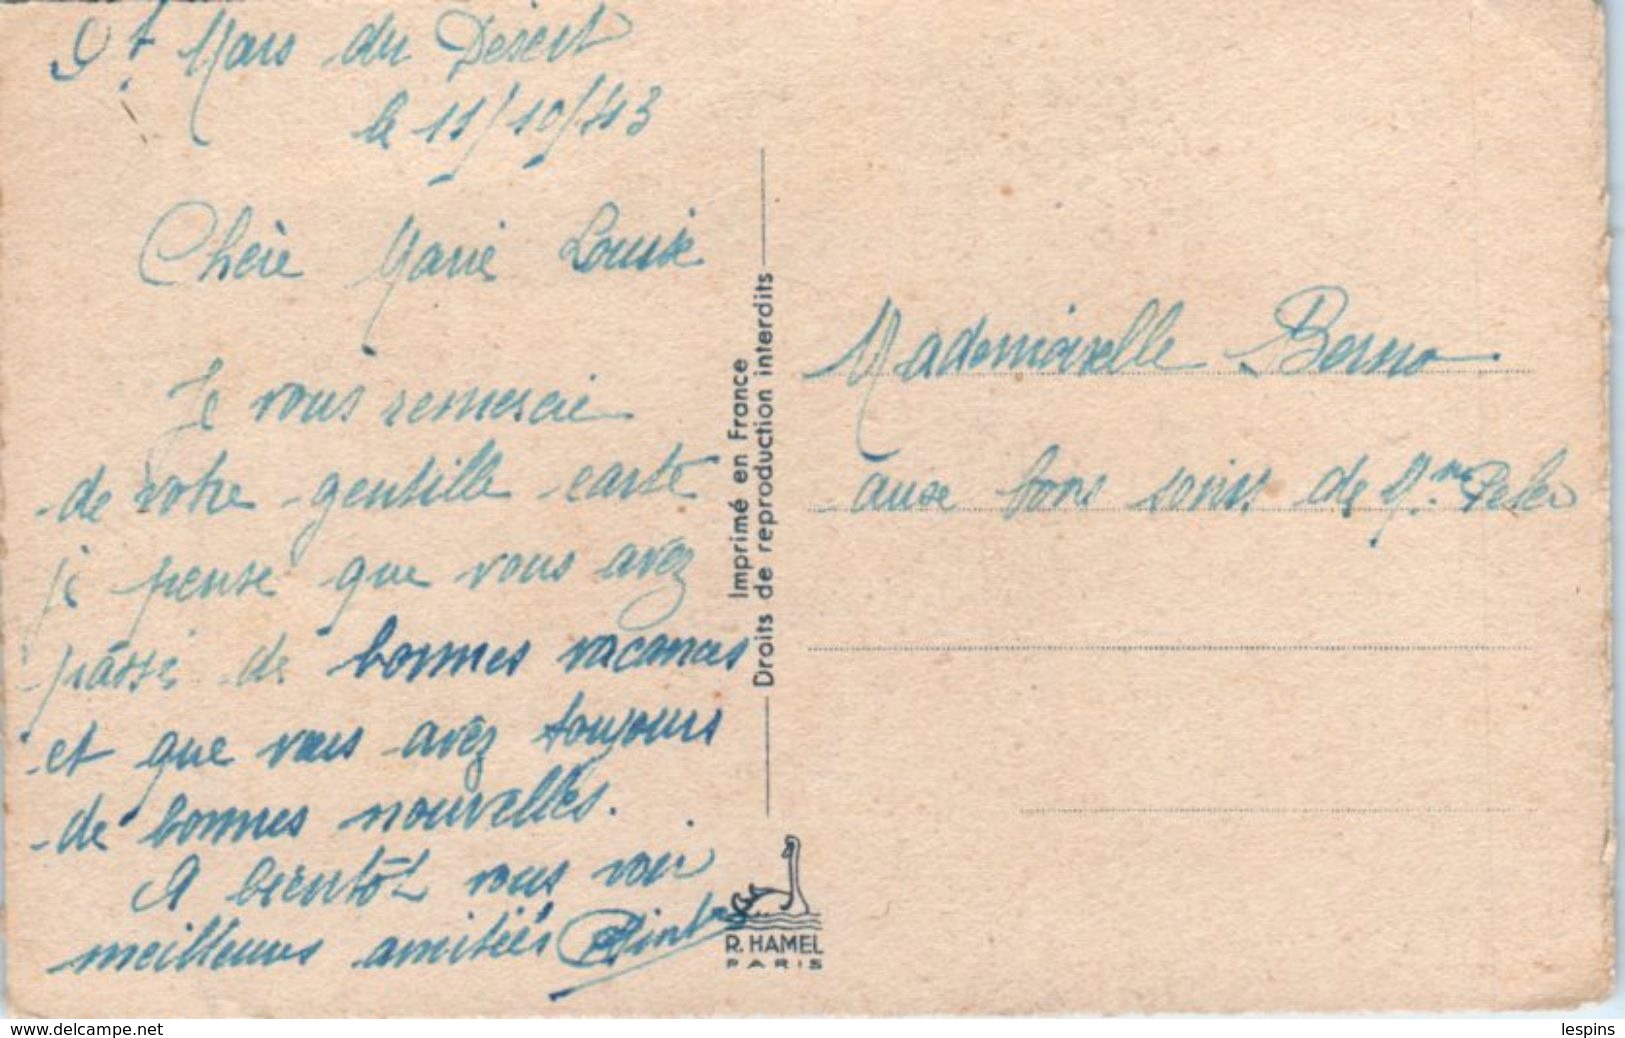 St Mars du Désert
le 11/10/43
Chère Marie Louise
Je vous remercie
de votre gentille carte
je pense que vous avez
passé de bonnes vacances
et que vous avez toujours
de bonnes nouvelles.
A bientôt vous voir
meilleures amitiés
Imprimé en France
Droits de reproduction interdits
R. HAMEL
PARIS
Mademoiselle
aux bons soins de Mme
www.delcampe.net
lespins